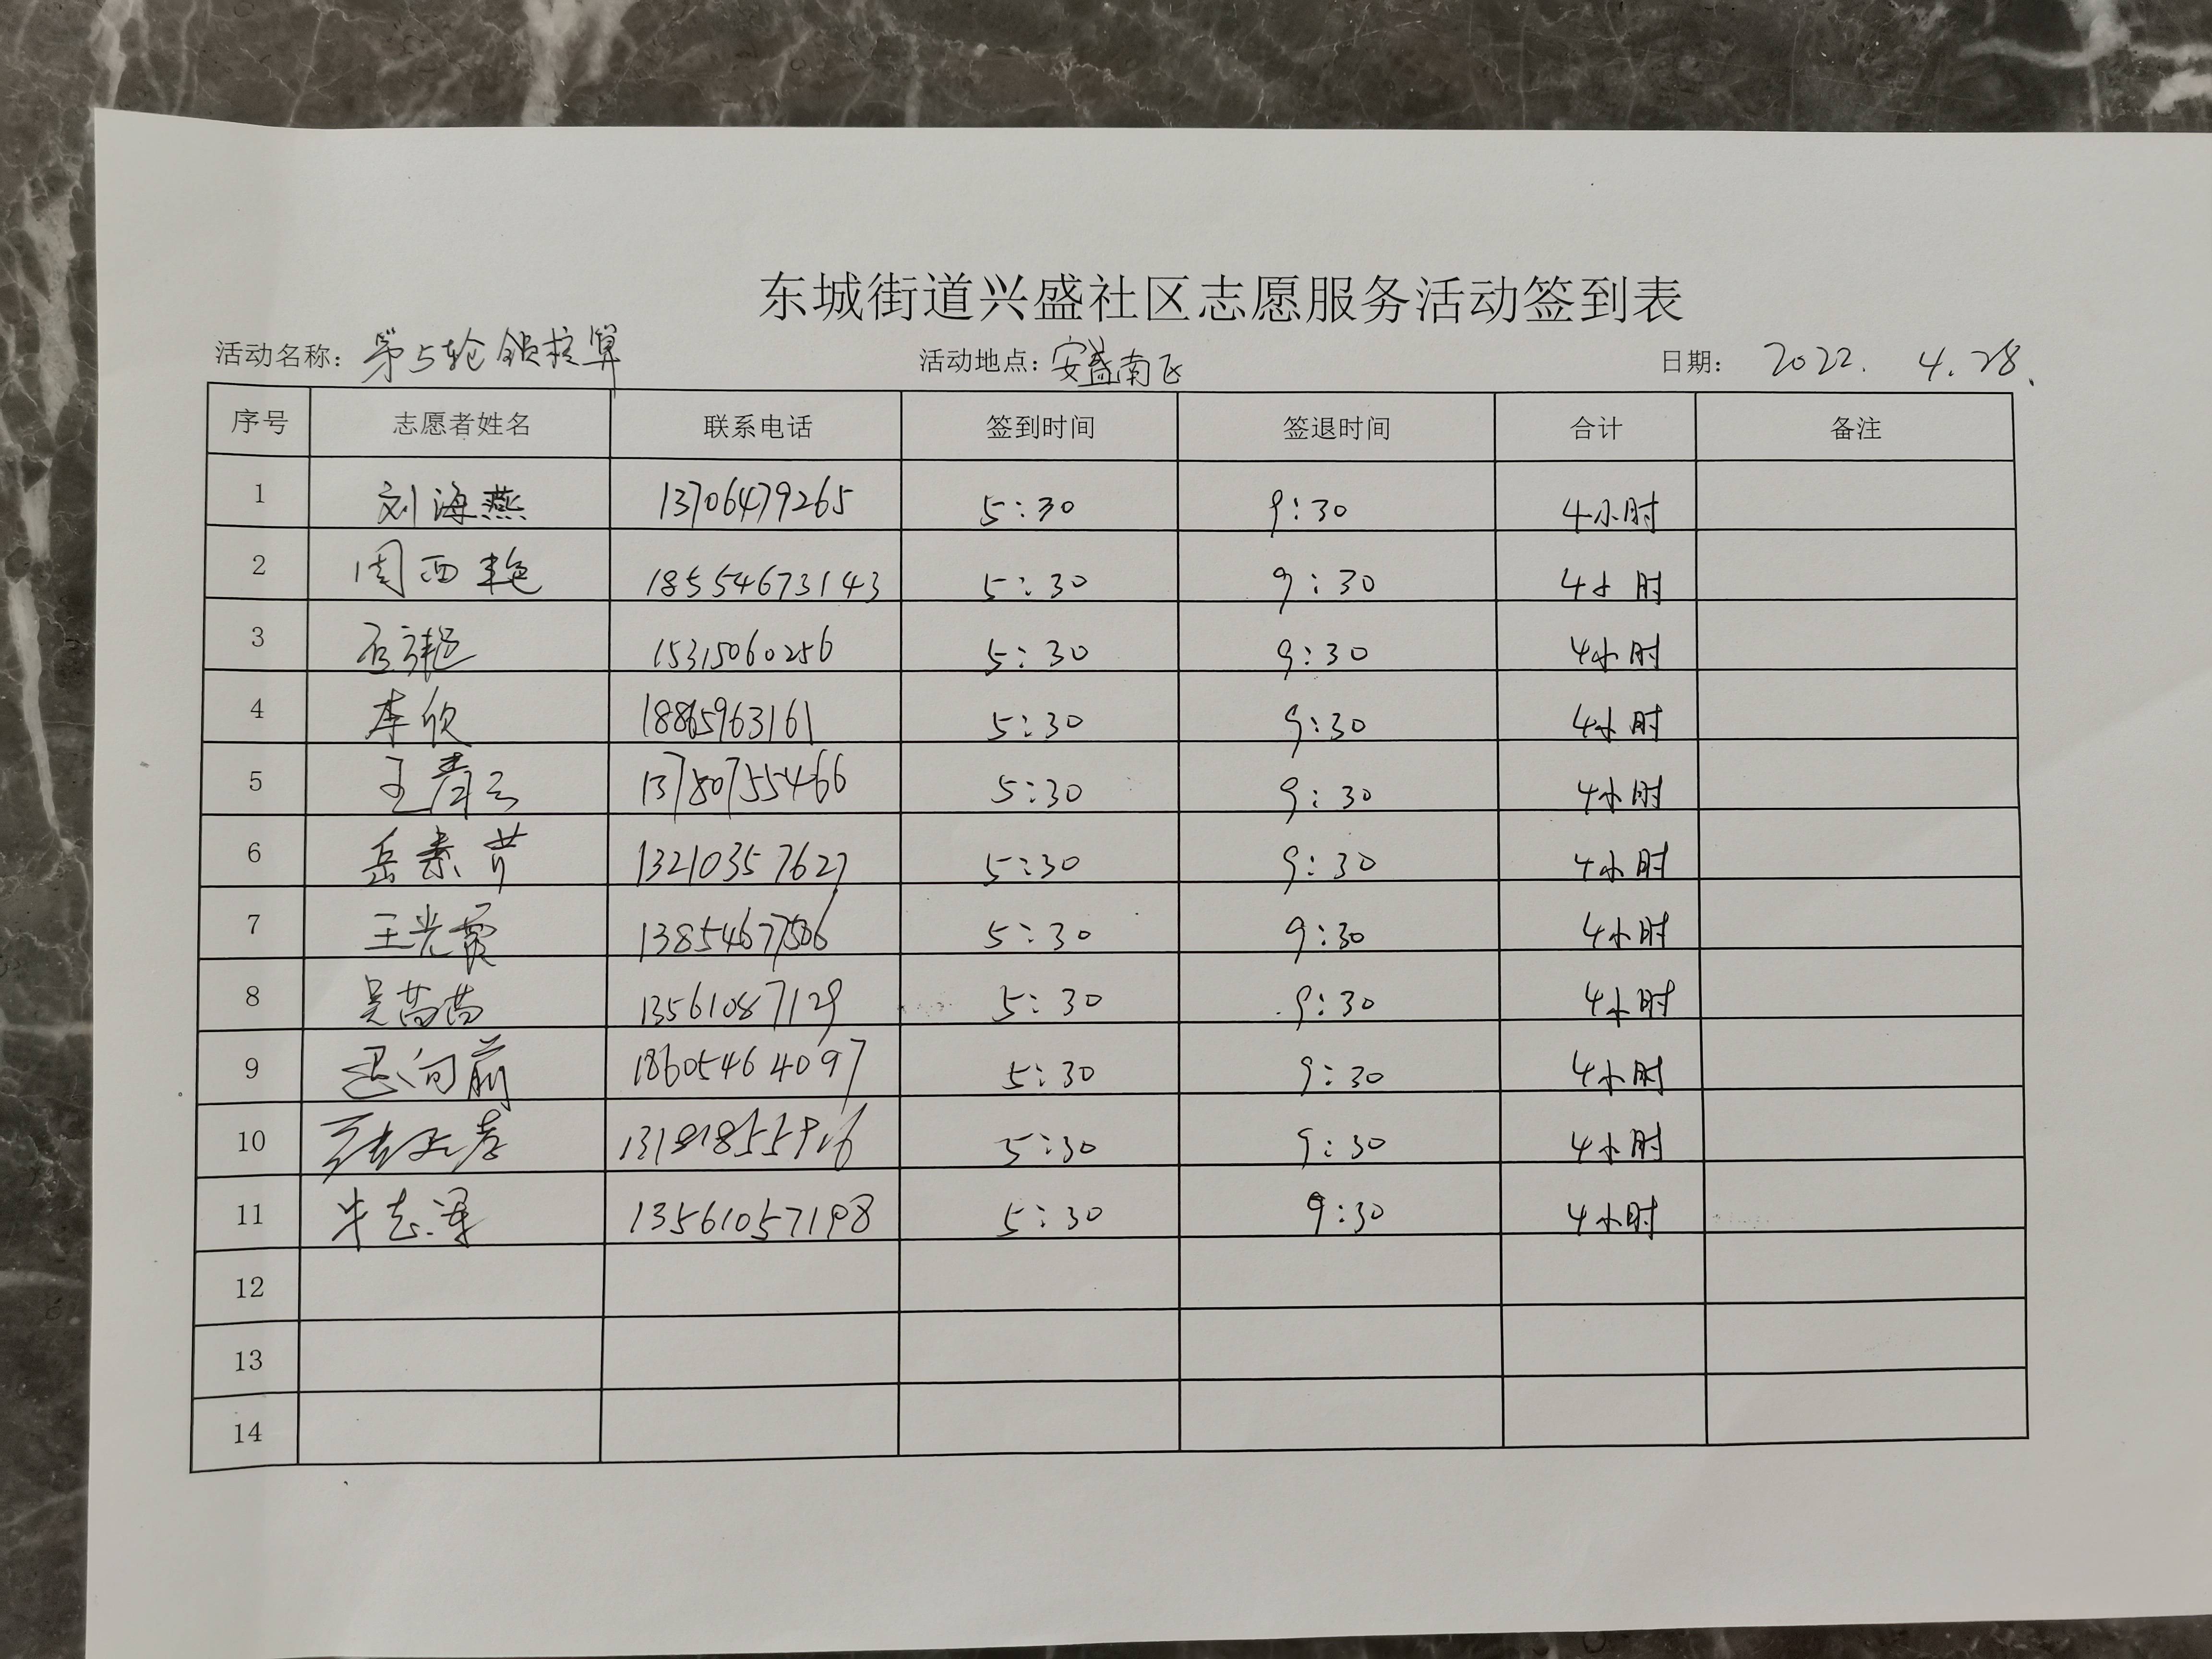 东城街道兴盛社区志愿服务活动签到表
活动名称：第5轮 核算 活动地点：安盛南区 日期：2022. 4.28.
序号 志愿者姓名 联系电话 签到时间 签退时间 合计 备注
1 刘海燕 13706479265 5:30 9:30 4小时
2 周西艳 18554673143 5:30 9:30 4小时
3 15315060256 5:30 9:30 4小时
4 李欣 18865963161 5:30 9:30 4小时
5 王青云 13780755466 5:30 9:30 4小时
6 岳素芹 13210357627 5:30 9:30 4小时
7 王光霞 13854677506 5:30 9:30 4小时
8 吴苗苗 13561087129 5:30 9:30 4小时
9 向前 18605464097 5:30 9:30 4小时
10 5:30 9:30 4小时
11 牛志军 13561057198 5:30 9:30 4小时
12
13
14